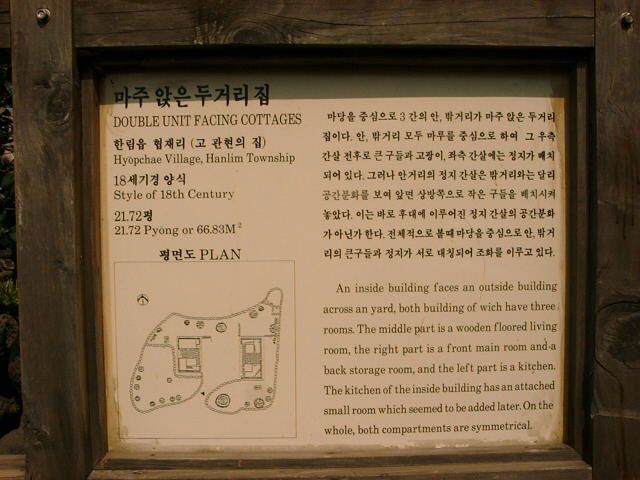 마주 앉은 두거리 집
DOUBLE UNIT FACING COTTAGES
한림읍 협재리 (고 관현의 집)
Hyŏpchae Village, Hanlim Township
18세기경 양식
Style of 18th Century
21.72평
21.72 Pyŏng or 66.83M²
평면도 PLAN
마당을 중심으로 3 간의 안, 밖거리가 마주 앉은 두거리
집이다. 안, 밖거리 모두 마루를 중심으로 하여 그 우측
간살 전후로 큰 구들과 고팡이, 좌측 간살에는 정지가 배치
되어 있다. 그러나 안거리의 정지 간살은 밖거리와는 달리
공간분화를 보여 앞면 상방쪽으로 작은 구들을 배치시켜
놓았다. 이는 바로 후대에 이루어진 정지 간살의 공간분화
가 아닌가 한다. 전체적으로 볼때 마당을 중심으로 안, 밖거
리의 큰구들과 정지가 서로 대칭되어 조화를 이루고 있다.
An inside building faces an outside building
across an yard, both building of wich have three
rooms. The middle part is a wooden floored living
room, the right part is a front main room and a
back storage room, and the left part is a kitchen.
The kitchen of the inside building has an attached
small room which seemed to be added later. On the
whole, both compartments are symmetrical.